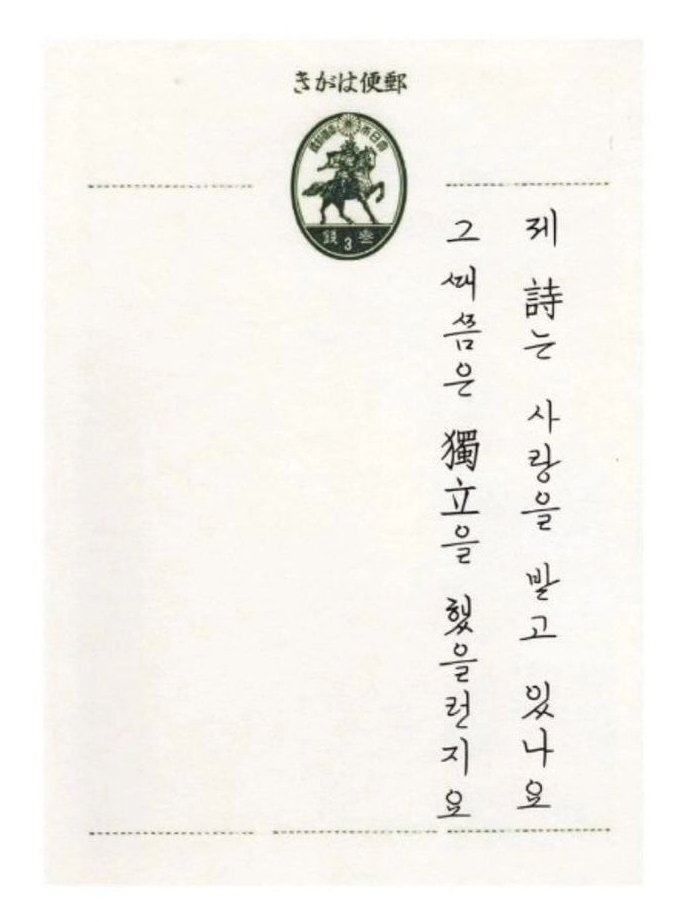 郵便はがき
3
제 詩는 사랑을 받고 있나요
그 때쯤은 獨立을 했을런지요